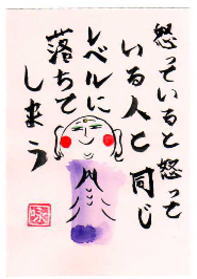 怒っていると怒って
いる人と同じ
レベルに
落ちて
しまう
咏